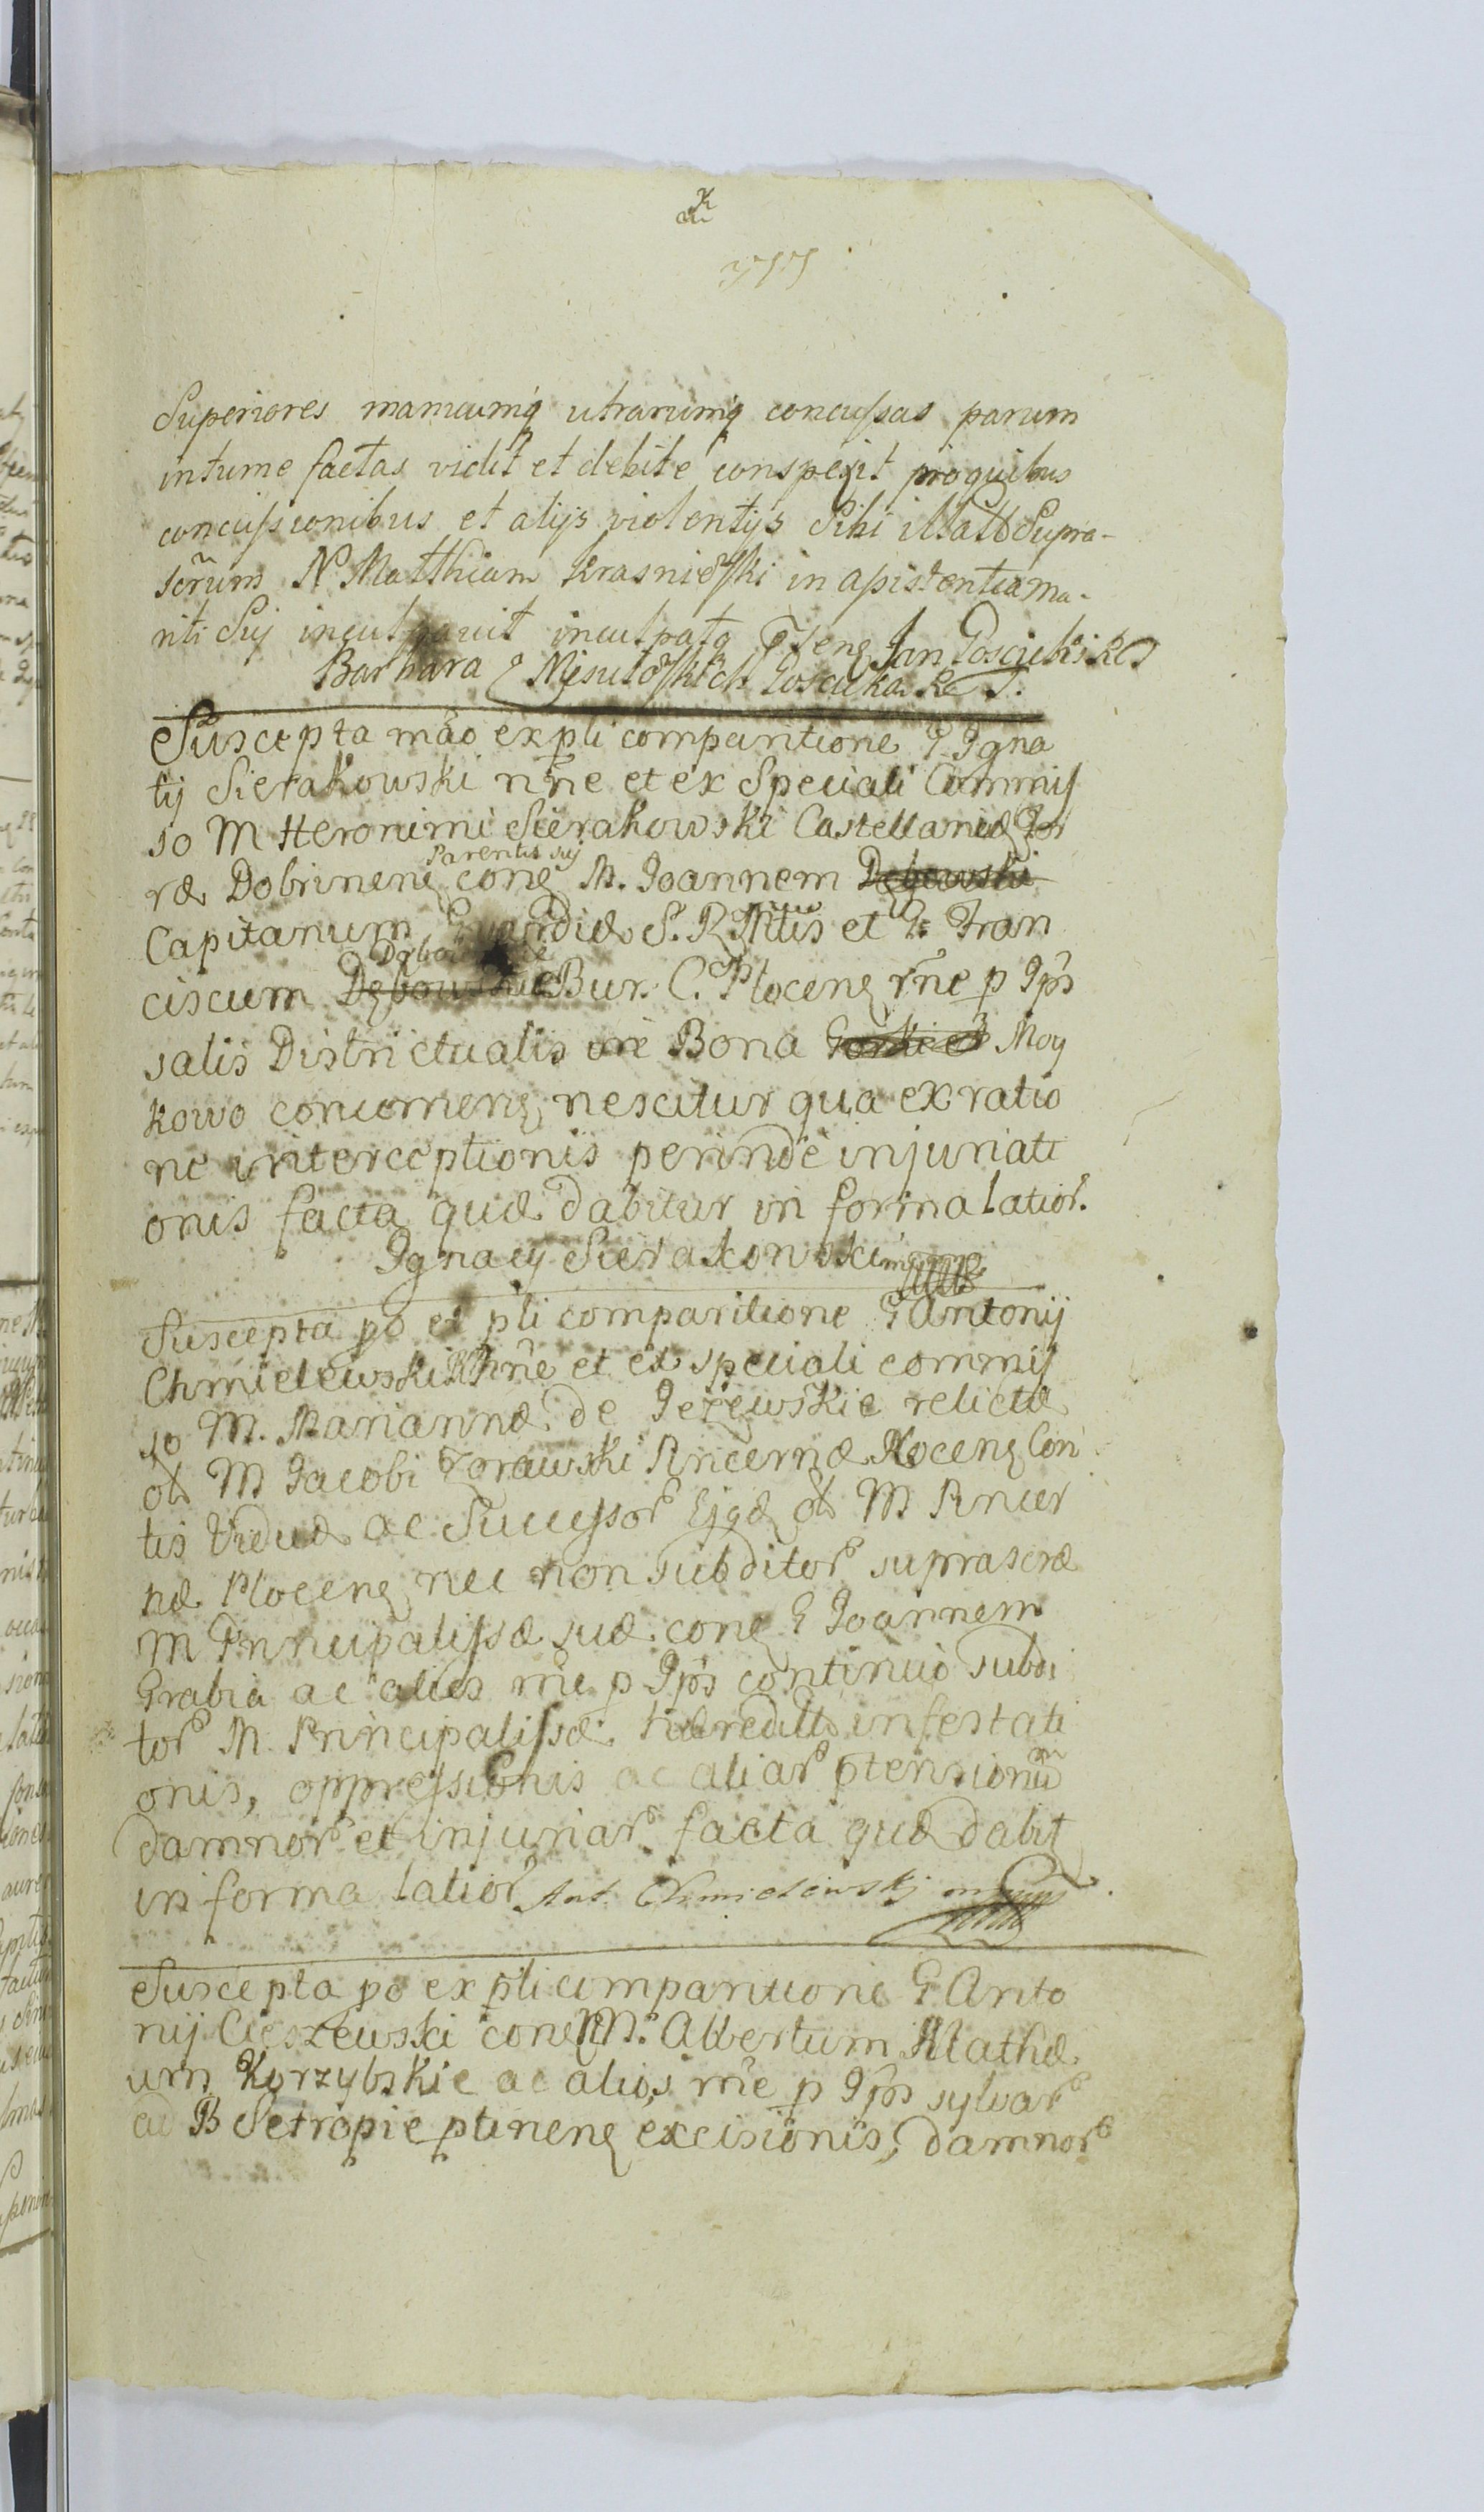 Superiores manuumq utrarumq concussas parum
intume factas vidit et debite conspexit proquibus
concussionibus et alijs violentijs Sibi illatis Supra-
scrum N Matthiam Krasniewski in assistentia ma-
riti Sui inculpavit inculpatq Tsene Jan Gościcki R S
Barbara z Nieśułowskich Gościcka R S.
Suscepta mão ex pli comparitione G Igna
tij Sierakowski nne et ex Speciali Commis
so M Hieronimi Sierakowski Castellanidæ Ter
ræ Dobrinens Parentis sui cone M. Joannem Dębowski
Capitanum Guardiæ S. R Mtis et G. Fran
ciscum Dębowskie Dębowskie Bur. C. Plocene rne p Ips
salis Districtualis in Bona Gorki et Moy
kowo concernens nescitur qua ex ratio
ne interceptionis perinde injuriati
onis facta quæ dabitur in forma latior.
Ignacy Sierakowski mp
Suscepta po ex pli comparitione G Antonij
Chmielewski nne et ex speciali commis
so M. Mariannæ de Jeżewskie relictæ
ol M Jacobi Zorawski Pincernæ Plocene Con
tis Viduæ ac Successor Ejqd ol M Pincer
næ Plocene nec non subditor suprascræ
M Principalissæ suæ cone G Joannem
Grabia ac alios rne p Ips continuo subdi
tor M. Principalissæ hæreditt infestati
onis, oppressionis ac aliar ptensionu
damnor et injuriar facta quæ dabit
in forma latior Ant. Chmielewski mp
Suscepta po ex pli comparitione G Anto
nij Cieszewski cone M. Albertum Mathæ
um Korzybskie ac alios rne p Ips sylvar
ad B Setropie ptinene excisionis, damnor